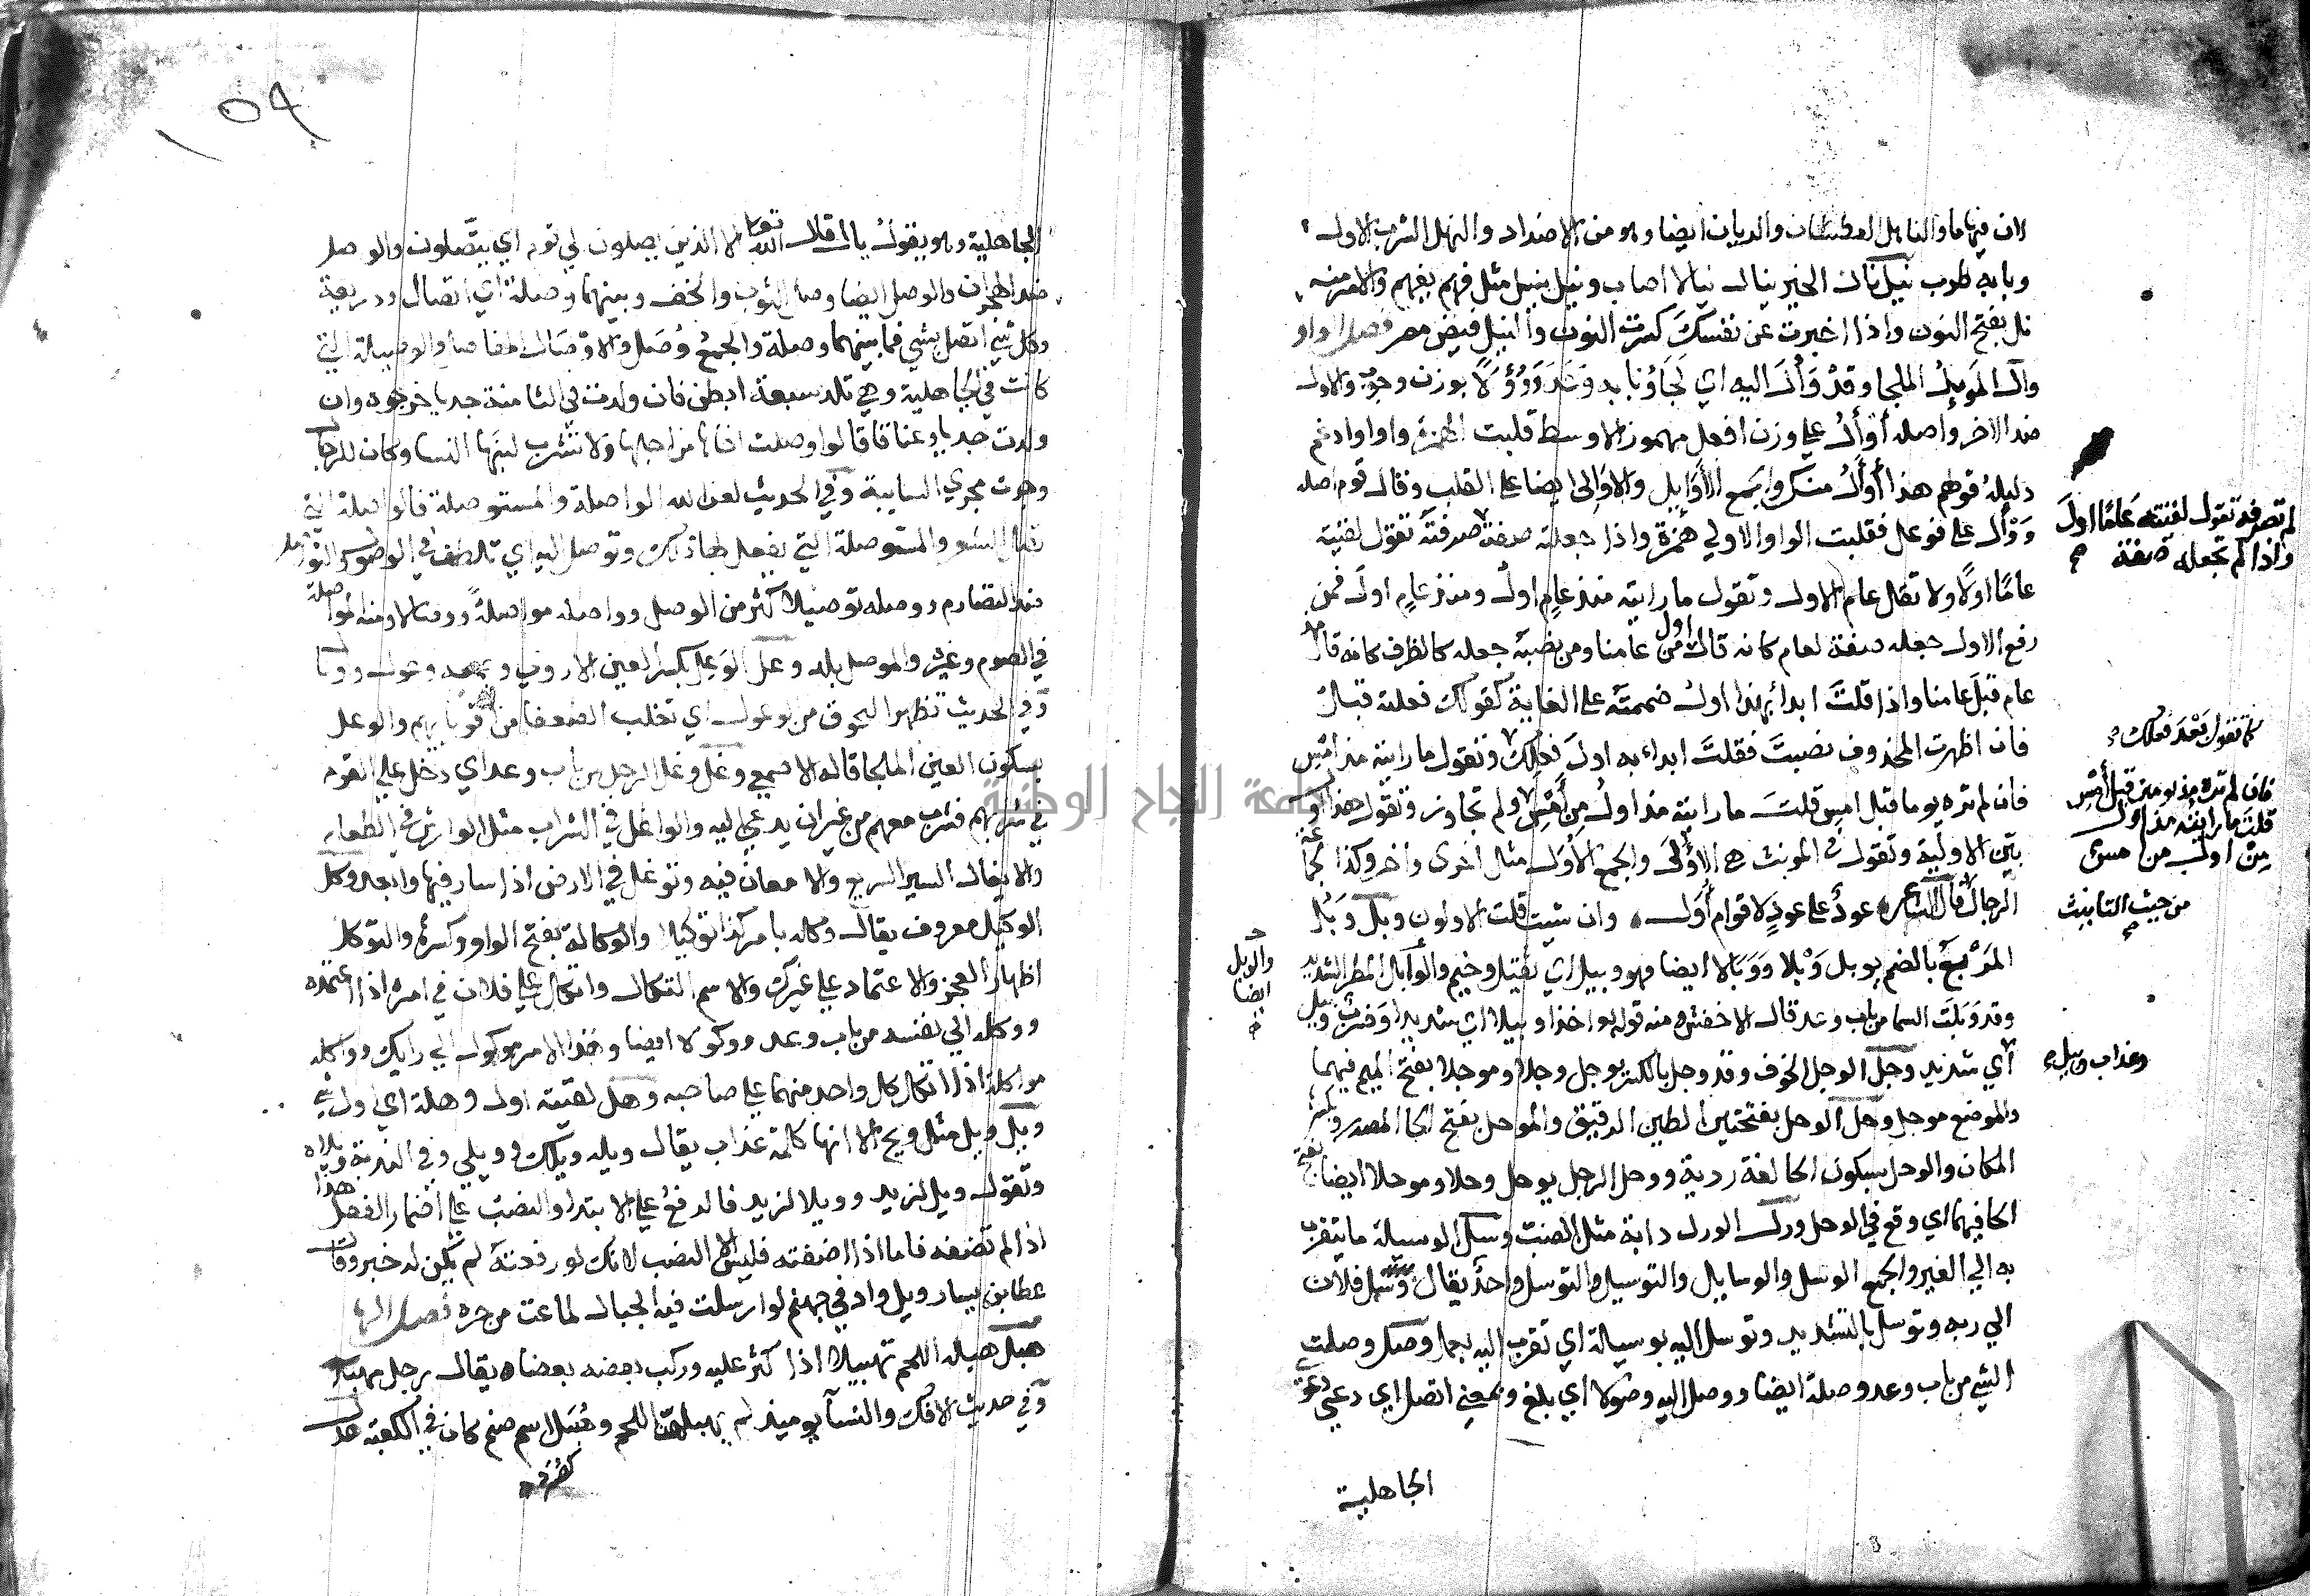 لان فيها ما والناهل العطشان والريان ايضا وهو من الاضداد والنهل الشرب الاول
وبابه طرب نيل نال الخير ينال نيلا اصاب ونيل ينيل مثل فهم يفهم والامر منه
نل بفتح النون واذا اخبرت عن نفسك كسرت النون والنيل فيض مصر فصل الواو
وأل الموئل الملجا وقد وأل اليه اي لجا وبابه وعد ووؤولا بوزن وجوب والاول
ضد الاخر واصله أوأل علي وزن افعل مهموز الاوسط قلبت الهمزة واوا وادغم
دليله قولهم هذا أول منك والجمع الأوايل والاوالى ايضا على القلب وقال قوم اصله
ووأل على فوعل فقلبت الواو الاولي همزة واذا جعلته صفة صرفته تقول لقيته
لم تصرفه تقول لقيته عاما اول
واذا لم تجعله صفة
عاما اولا ولا تقل عام الاول وتقول ما رايته منذ عام اول ومنذ عام اول فمن
رفع الاول جعله صفة لعام كانه قال اول من عامنا ومن نصبه جعله كالظرف كانه قال مذ
عام قبل عامنا واذا قلت ابدأ بهذا اول ضممته على الغاية كقولك فعلته قبل
كما تقول فعلك
فان اظهرت المحذوف نصبت فقلت ابداء به اول فعلك وتقول ما رايته مذ امس
فان لم تره يوما قبل امس قلت ما رايته مذ اول من امس ولم تجاوز وتقول هذا اول
فان لم تره مذ يومين قبل امس
قلت ما رايته مذ اول
من اول من امس
بين الاولية وتقول في المونث هي الاولى والجمع الأول مثل اخرى واخر وكذا لجماعة
الرجال قال الشاعر عود على عود لاقوام أول وان شيت قلت الاولون وبل وبل
من حيث التانيث
المرتع بالضم يوبل وبلا ووبالا ايضا فهو وبيل اي ثقيل وخيم والوابل المطر الشديد
والوبل
ايضا
وقد وبلت السما من باب وعد قال الاخفش ومنه قوله اخذا وبيلا اي شديدا وضرب وبيل
وعذاب وبيل
أي شديد وجل الوجل الخوف وقد وجل بالكسر يوجل وجلا وموجلا بفتح الميم فيهما
والموضع موجل وحل الوحل بفتحتين الطين الرقيق والموحل بفتح الحا المصدر وبكسر
المكان والوحل بسكون الحا لغة ردية ووحل الرجل يوحل وحلا وموحلا ايضا بفتح
الحا فيهما اي وقع في الوحل ورل الورل دابة مثل الضب وسل الوسيلة ما يتقرب
به الي الغير والجمع الوسل والوسايل والتوسيل والتوسل واحد يقال وسل فلان
الي ربه وتوسل بالتشديد وتوسل اليه بوسيلة اي تقرب اليه بعمل وصل وصلت
الشي من باب وعد وصلة ايضا ووصل اليه وصولا اي بلغ وبمعني اتصل اي دعي دعوة
الجاهلية
١٥٩
الجاهلية وهو يقول يال قال الله تعا الا الذين يصلون الي قوم اي يتصلون والوصل
ضد الهجران والوصل ايضا وصل الثوب والخف وبينهما وصلة اي اتصال وذريعة
وكل شي اتصل بشي فما بينهما وصلة والجمع وصل والاوصال المفاصل والوصيلة التي
كانت في الجاهلية وهي تلد سبعة ابطن فان ولدت في الثامنة جديا ذبحوه وان
ولدت جديا وعناقا قالوا وصلت اخاها من اجلها ولا تشرب لبنها النسا وكان للرجال
وجرت مجري السايبة وفي الحديث لعن الله الواصلة والمستوصلة فالواصلة التي
تصل الشعر والمستوصلة التي يفعل لها ذلك وتوصل اليه اي تلطف في الوصول والتواصل
ضد التصارم ووصله توصيلا اكثر من الوصل وواصله مواصلة ووصالا ومنه المواصلة
في الصوم وغيره والموصل بلد وعل الوعل بكسر العين الاروي وجمعه وعول
وفي الحديث تظهر التحوت من الوعول اي تغلب الضعفا من اقويايهم والوعل
بسكون العين الملجا قاله الاصمعي وغل وغل الرجل من باب وعد اي دخل علي القوم
في شربهم فشرب معهم من غير ان يدعي اليه والواغل في الشراب مثل الوارش في الطعام
والايغال السير السريع والامعان فيه وتوغل في الارض اذا سار فيها وابعد وكل
الوكيل معروف يقال وكله بامر كذا توكيلا والوكالة بفتح الواو وكسرها والتوكل
اظهار العجز والاعتماد علي غيرك والاسم التكلان واتكل علي فلان في امره اذا اعتمده
ووكله الي نفسه من باب وعد ووكولا ايضا وهذا الامر موكول الي رايك وواكله
مواكلة اذا اتكل كل واحد منهما علي صاحبه وهل لقيته اول وهلة اي اول شي
ويل ويل مثل ويح الا انها كلمة عذاب يقال ويله وويلك وويلي وفي الندبة ويلاه
وتقول ويل لزيد وويلا لزيد فالرفع علي الابتدا والنصب علي اضمار الفعل هذا
اذا لم تضفه فاما اذا اضفته فليس الا النصب لانك لو رفعته لم يكن له خبر وقال
عطا بن يسار ويل واد في جهنم لو ارسلت فيه الجبال لماعت من حره فصل الها
هبل هبله اللحم تهبيلا اذا كثر عليه وركب بعضه بعضا يقال رجل مهبل
وفي حديث الافك والنسا يوميذ لم يهبلهن اللحم وهبل اسم صنم كان في الكعبة
جامعة النجاح الوطنية